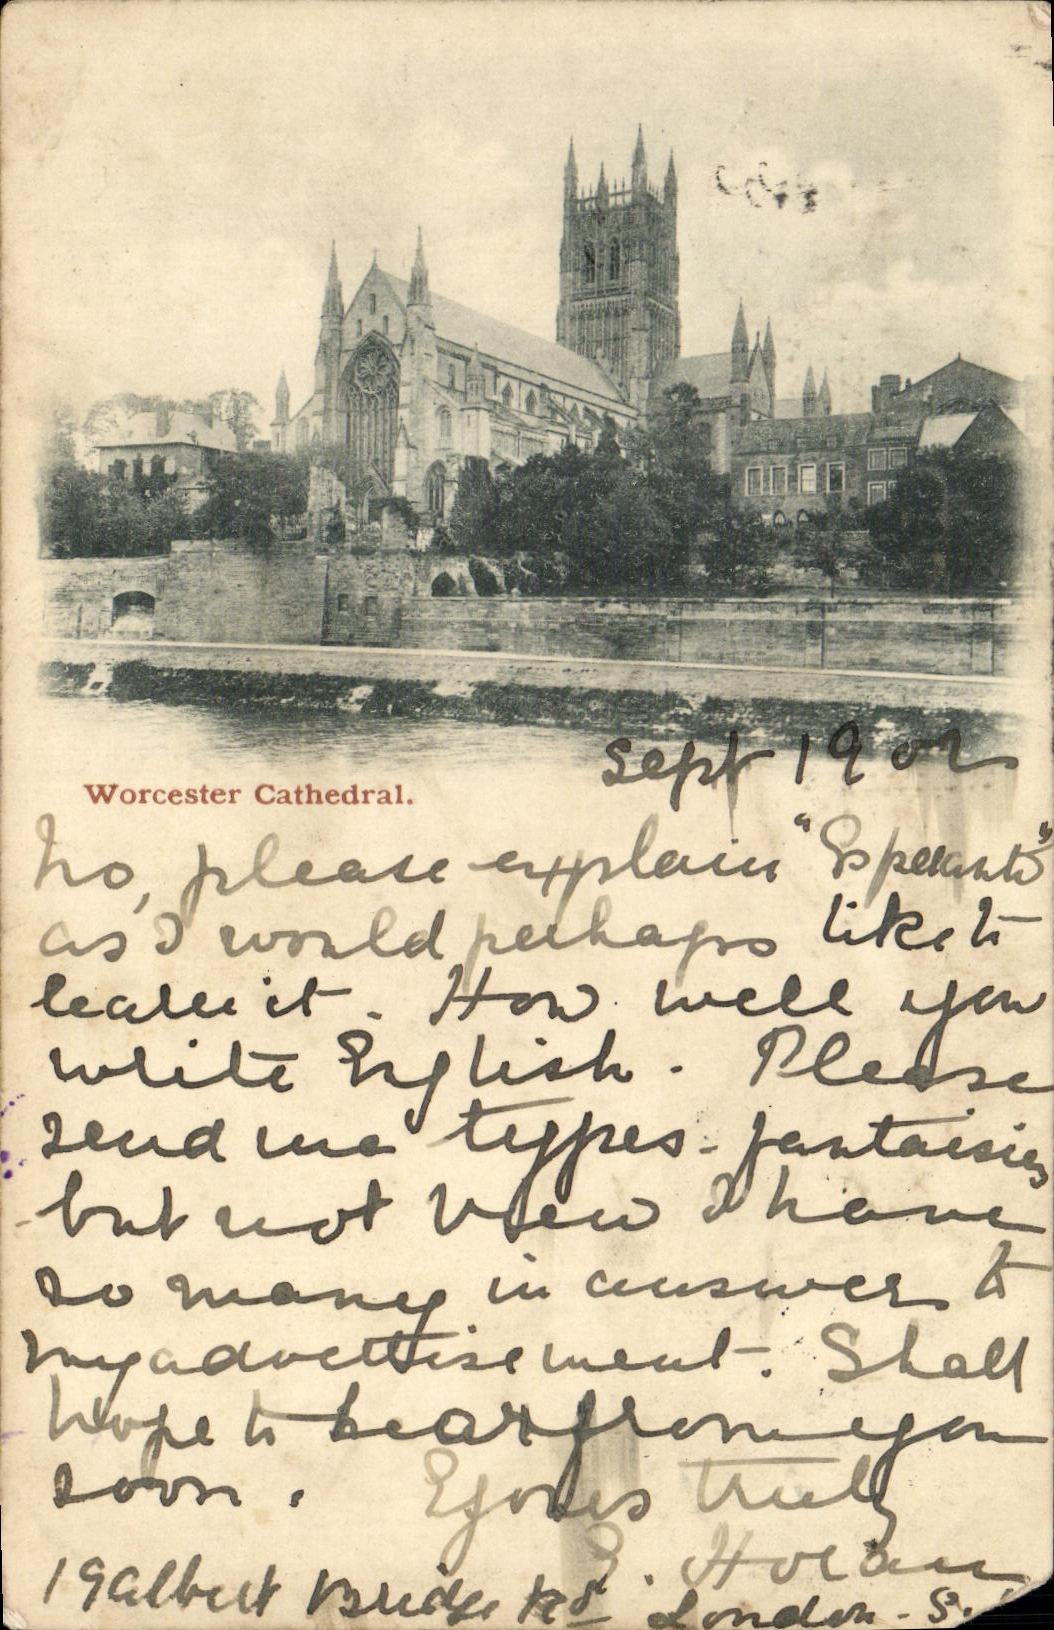 Sept 1902
Worcester Cathedral.
No, please explain "Esperanto"
as I would perhaps like to
learn it. How well you
write English. Please
send me types-fantaisies
but not view I have
so many in answer to
my advertisement. Shall
hope to hear from you
soon. Yours truly
E. Horan
19 Albert Bridge Rd London. S.